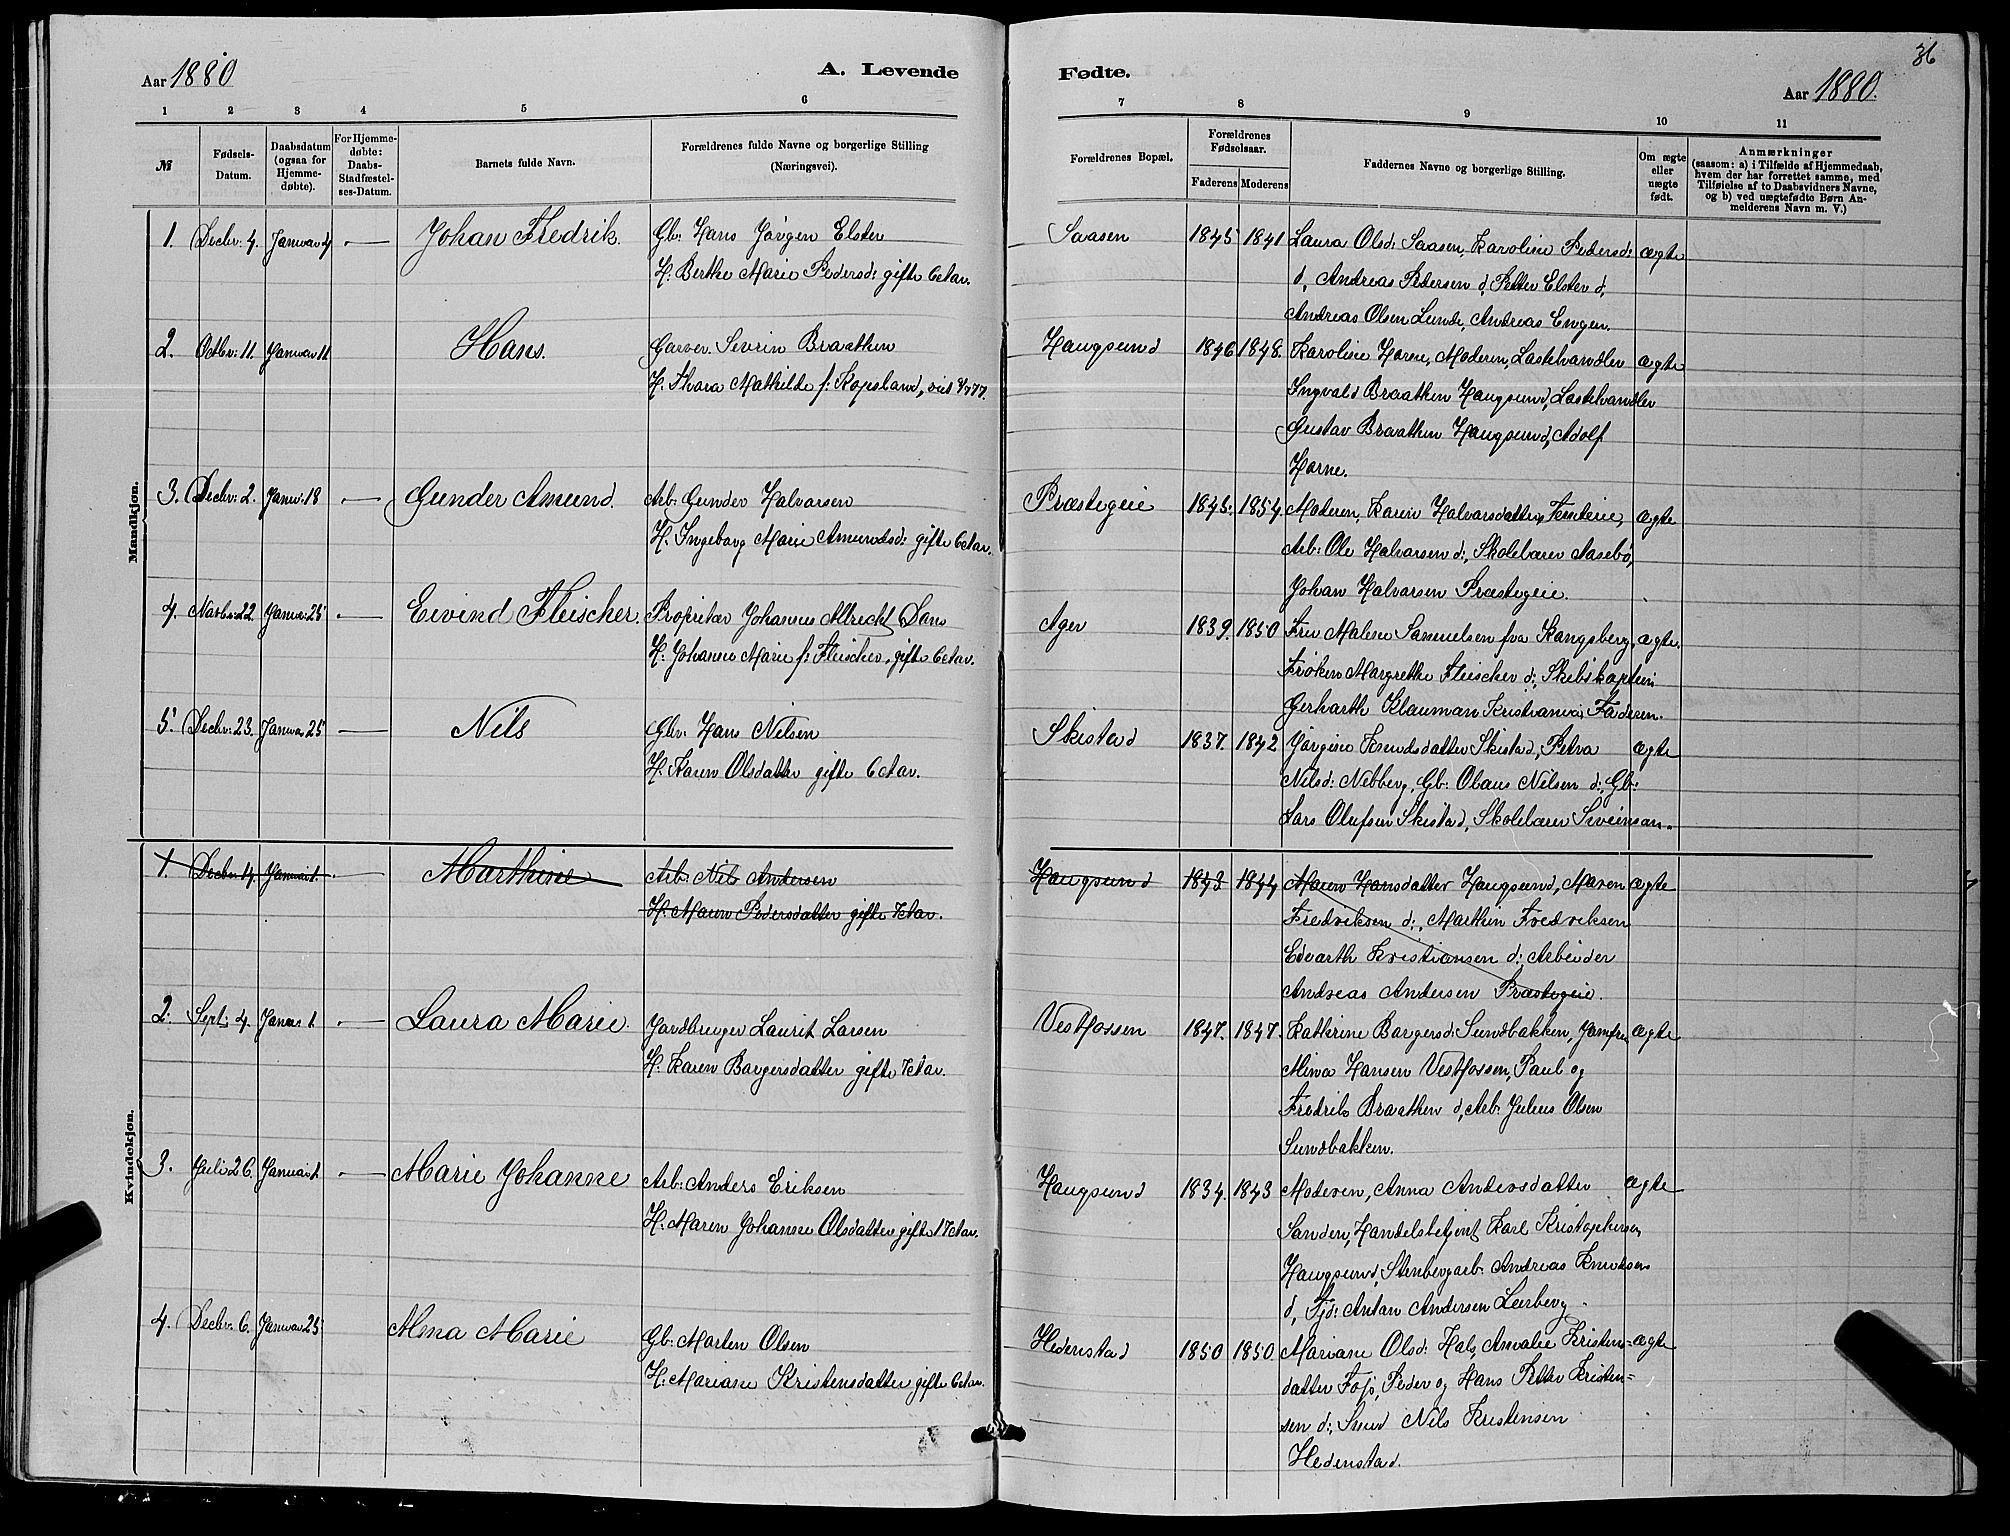 36
Aar 1880
A. Levende
Fødte.
Aar 1880.
1 2 3 4 5 6 7 8 9 10 11
№
Fødsels-
Datum.
Daabsdatum
(ogsaa for
Hjemme-
døbte).
For Hjemme-
døbte:
Daabs-
Stadfæstel-
ses-Datum.
Barnets fulde Navn.
Forældrenes fulde Navne og borgerlige Stilling
(Næringsvei).
Forældrenes Bopæl.
Forældrenes
Fødselsaar.
Faderens Moderens
Faddernes Navne og borgerlige Stilling.
Om ægte
eller
uægte
født.
Anmærkninger
(saasom: a) i Tilfælde af Hjemmedaab,
hvem der har forrettet samme, med
Tilføielse af to Daabsvidners Navne,
og b) ved uægtefødte Børn An-
melderens Navn m. V.)
Mandkjøn.
1. Decbr: 4. Januar 4 — Johan Fredrik. Gb: Hans Jørgen Elster
H: Berthe Marie Pedersd: gifte 6ctav.
Saasen 1845 1841 Laura Olsd: Saasen, Karoline Pedersd: ægte
d, Andreas Pedersen d, Petter Elster d,
Andreas Olsen Lunde, Andreas Engen.
2. Octbr: 11. Januar 11 Hans. Garver Sevrin Braathen
H. Thora Mathilde f: Kopsland, viet
Haugsund 1846 1848. Karoline Horne, Moderen, Lastehandler ægte
Ingvald Braathen Haugsund, Lastehandler
Gustav Braathen Haugsund, Adolf
Horne.
3. Decbr: 2. Janu: 18 — Gunder Amund. Arb: Gunder Halvorsen
H. Ingeborg Marie Amundsd: gifte 6ctav.
Præstegeie 1845. 1854 Moderen, Karen Halvorsdatter ægte
Arb: Ole Halvorsen d:, Skolelærer Aasebø,
Johan Halvorsen Præstegeie.
4. Novbr: 22. Januar 25 — Eivind Fleischer. Proprietær Johannes Albrecht Dons
H. Johanne Marie f: Fleischer, gifte 6ctav.
Ager 1839. 1850 Fru Malene Samuelsen fra Kongsberg, ægte.
Frøken Margrethe Fleischer d:, Skibskaptein
Gerharth Klauman Kristiania, Faderen.
5. Decbr: 23. Januar 25 — Nils Gbr: Hans Nilsen
H. Karen Olsdatter gifte 6ctav.
Skistad 1837. 1842 Jørgine Knudsdatter Skistad, Petra ægte
Nilsd: Nebberg, Gb: Olaus Nilsen d:, Gb:
Lars Olufsen Skistad, Skolelærer Sveinson.
Kvindekjøn.
1. Decbr: 14 Januar 1. — Marthine Arb: Nils Andersen
H. Maren Pedersdatter gifte 7ctav.
Haugsund 1843 1844 Maren Hansdatter Haugsund, Maren ægte
Fredriksen d:, Marthin Fredriksen
Edvarth Kristiansen d: Arbeider
Andreas Andersen Præstegeie.
2. Sept: 4. Januar 1. — Laura Marie. Jordbruger Laurits Larsen
H. Karen Borgersdatter gifte 7ctav.
Vestfossen 1847. 1847. Kathrine Borgersd: Sundbakken, Jomfru ægte
Mina Hansen Vestfossen, Paul og
Fredrik Braathen d, Arb: Julius Olsen
Sundbakken.
3. Juli 26. Januar 1. — Marie Johanne Arb: Anders Eriksen
H: Maren Johanne Olsdatter gifte 17ctav.
Haugsund 1834. 1843 Moderen, Anna Andersdatter ægte
Sanden, Handelsbetjent Karl Kristophersen
Haugsund, Stenbergarb: Andreas Knudsen
d, Tjd: Anton Andersen Leerberg.
4. Decbr: 6. Januar 25 Alma Marie Gb: Morten Olsen
H: Mariane Kristensdatter gifte 6ctav.
Hedenstad 1850 1850 Mariane Olsd: Hals, Amalie Kristens= ægte
datter Fojo, Peder og Hans Petter Kristen=
sen d:, Smed Nils Kristensen
Hedenstad.